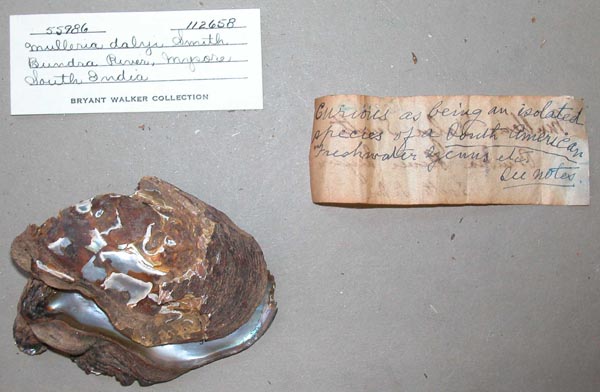 55986 112658
Mulleria dalyi Smith
Bundra River, Mysore
South India
BRYANT WALKER COLLECTION
Curious as being an isolated
species of a South American
Freshwater genus etc.
See notes.